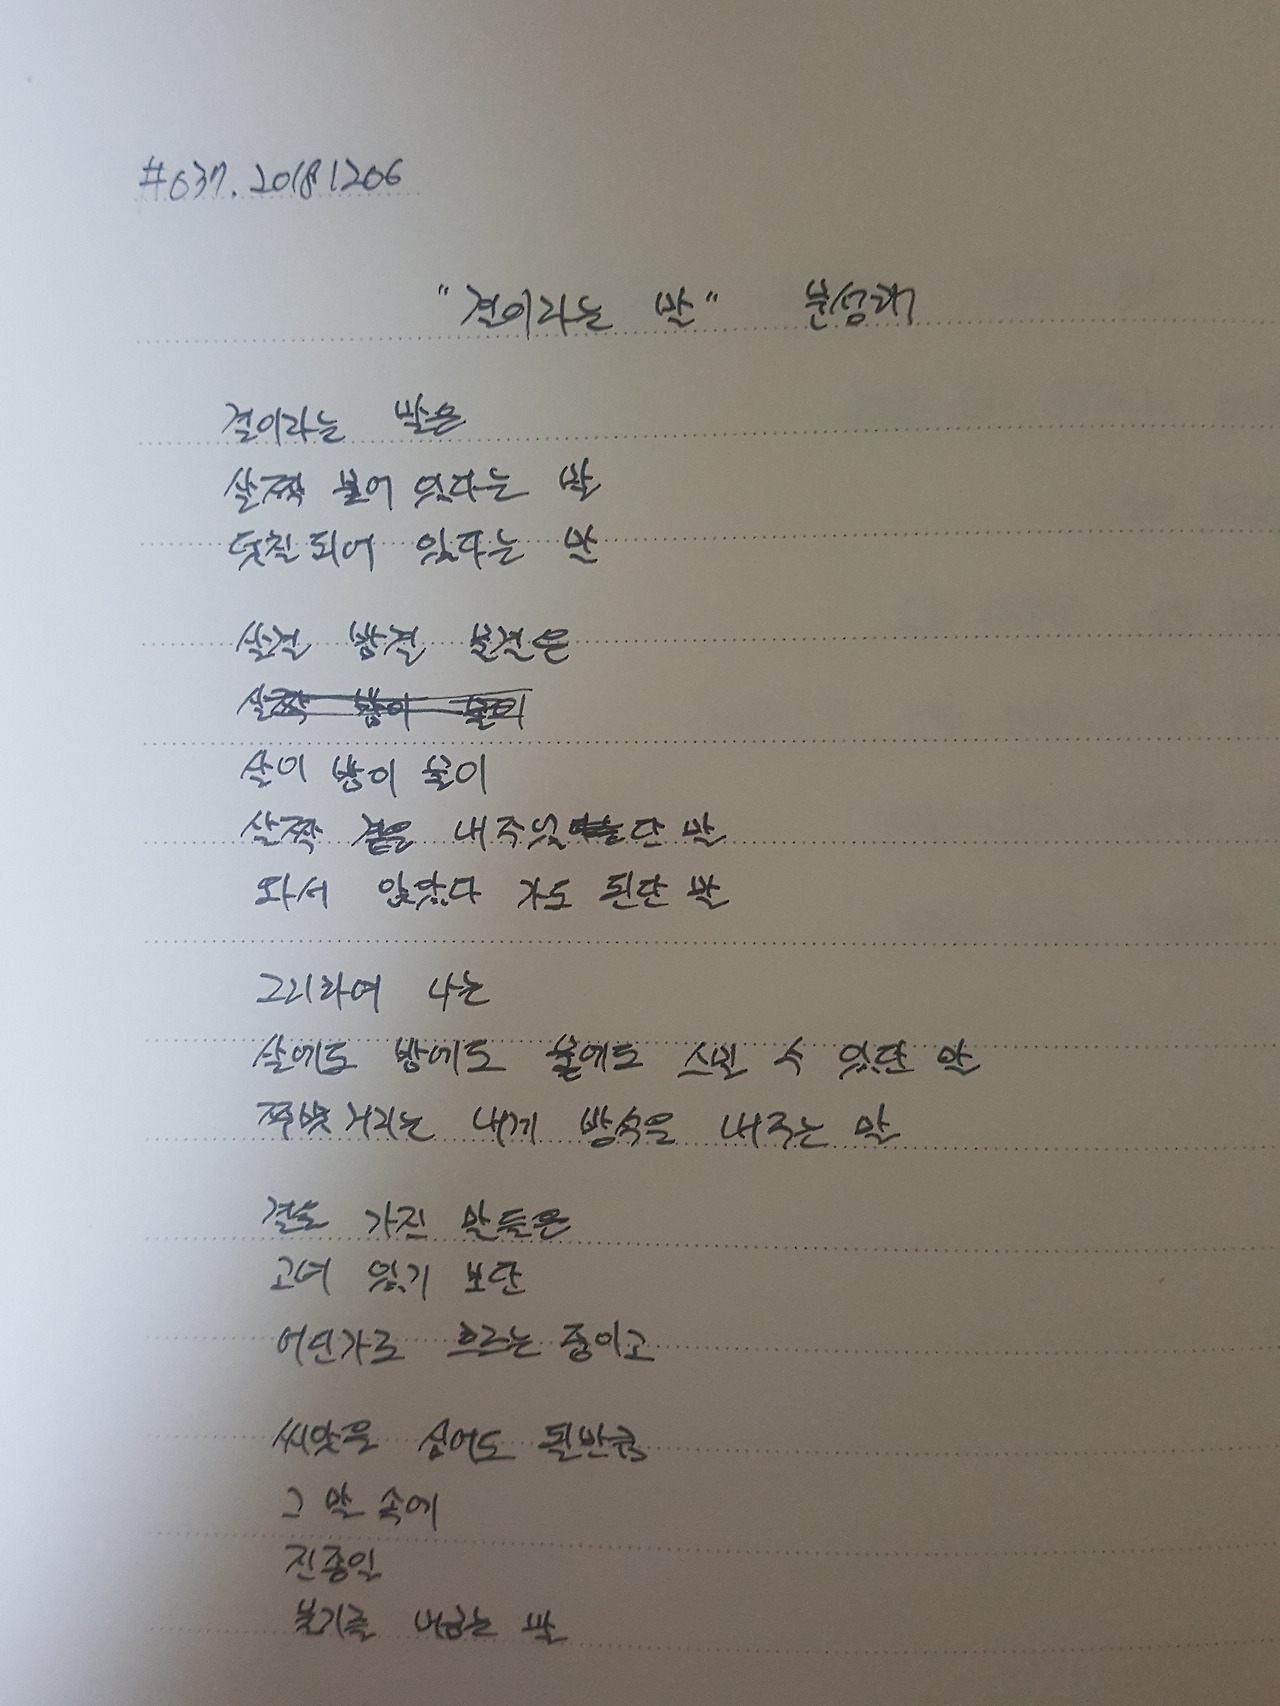 #037. 20181206
"결이라는 말" 문성해
결이라는 말은
살짝 묻어 있다는 말
덧칠되어 있다는 말
살결 밤결 물결은
살이 밤이 물이
살짝 곁을 내주었단 말
와서 앉았다 가도 된단 말
그리하여 나는
살에도 밤에도 물에도 스밀 수 있단 말
쭈뼛거리는 내게 방석을 내주는 말
결을 가진 말들은
고여 있기 보단
어딘가로 흐르는 중이고
씨앗을 심어도 될만큼
그 말 속에
진종일
물기를 머금는 말